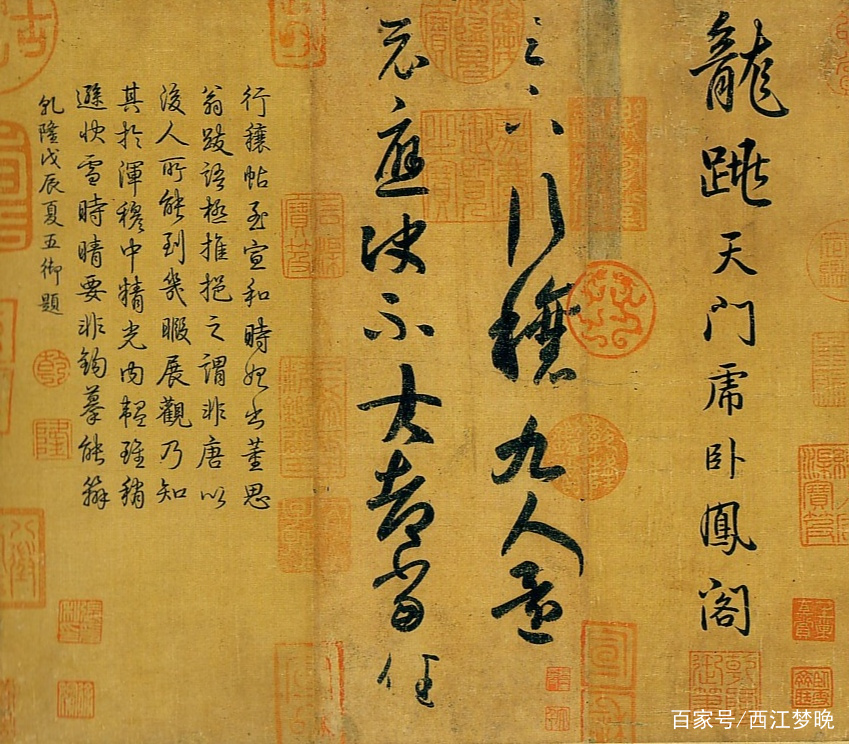 龍跳天門虎卧鳳閣
足下行穰九人還
示應決不大都當任
行穰帖至宣和時始出董思
翁跋語極推挹之謂非唐以
後人所能到幾暇展觀乃知
其於渾穆中精光內韞雖稍
遜快雪時晴要非鉤摹能辦
乾隆戊辰夏五御題
乾
隆
百家号/西江梦晚